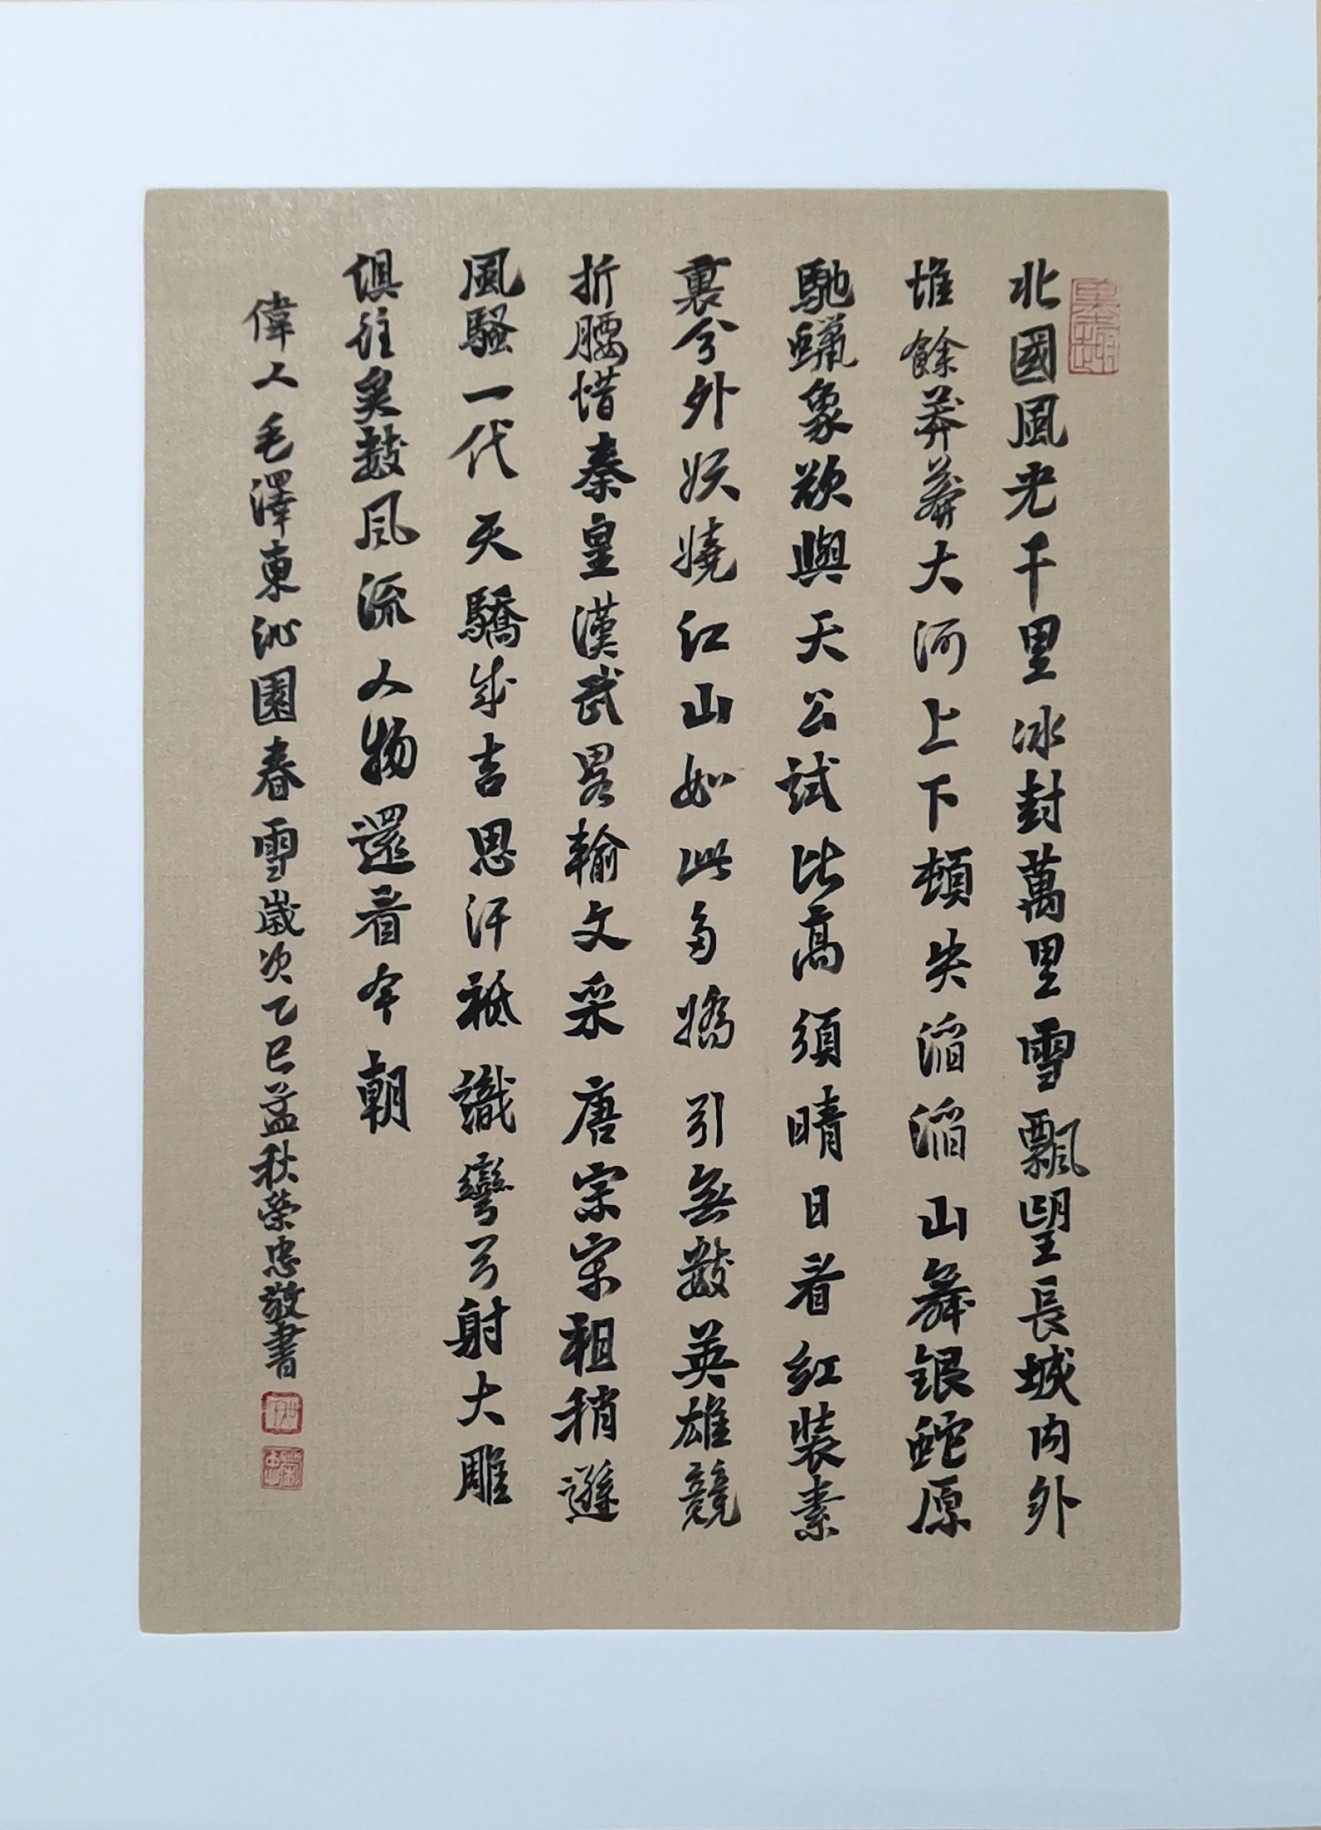 北國風光千里冰封萬里雪飄望長城内外
惟餘莽莽大河上下頓失滔滔山舞銀蛇原
馳蠟象欲與天公試比高須晴日看紅裝素
裹分外妖嬈江山如此多嬌引無數英雄競
折腰惜秦皇漢武畧輸文采唐宗宋祖稍遜
風騷一代天驕成吉思汗祗識彎弓射大雕
俱往矣數風流人物還看今朝
偉人毛澤東沁園春雪歲次乙巳孟秋榮忠敬書